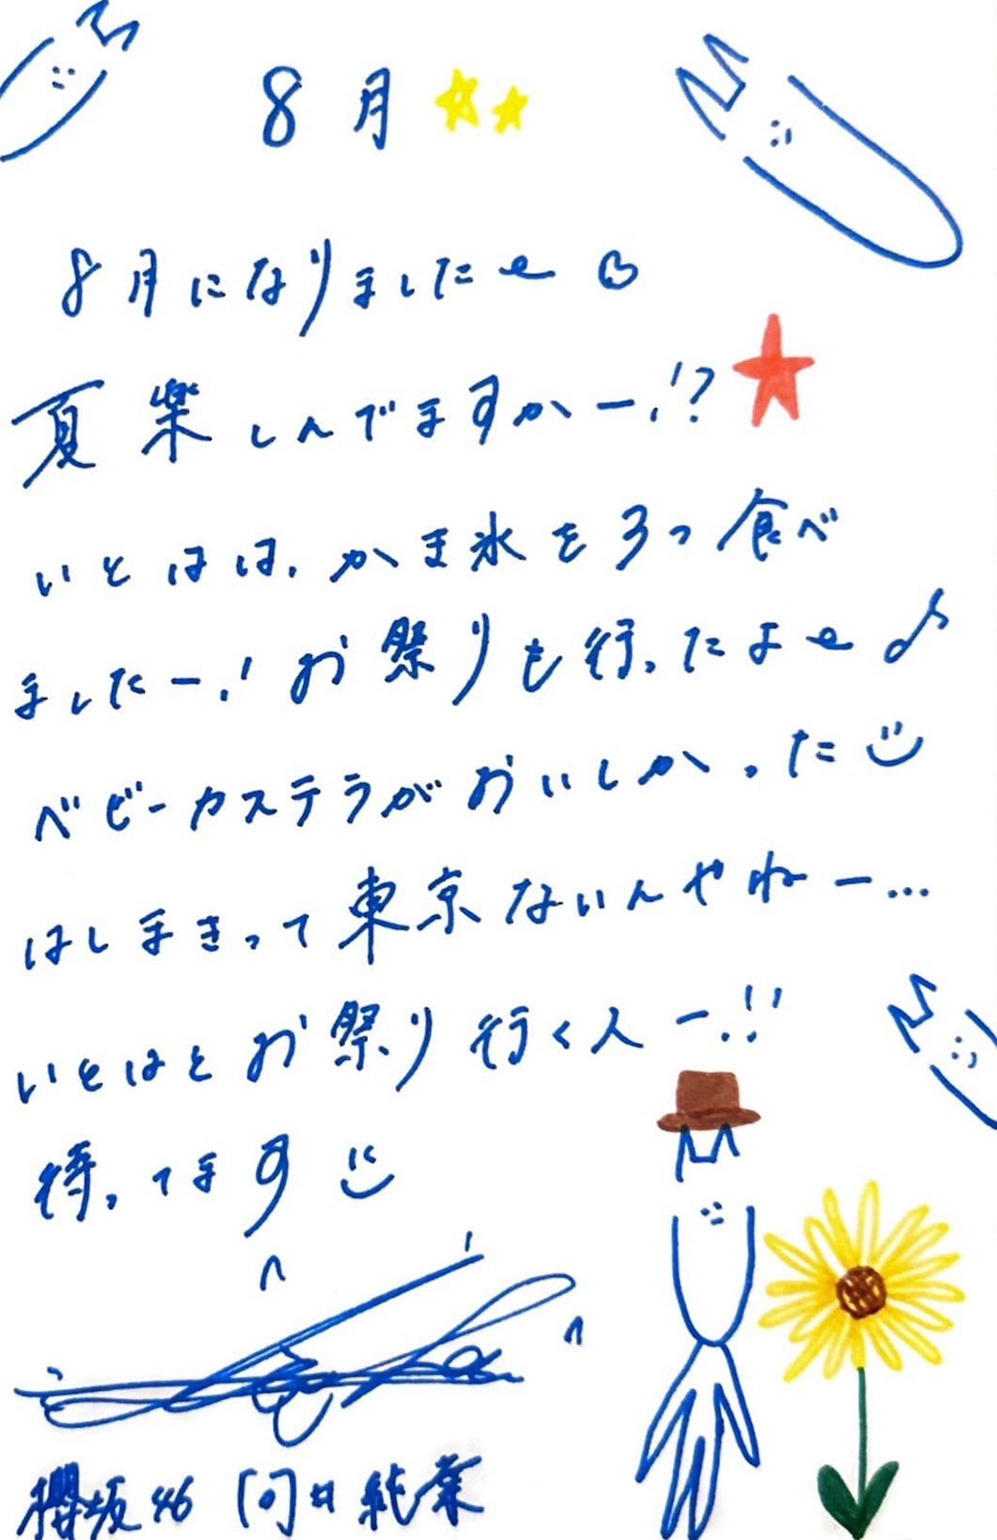 8月
8月になりましたね
夏楽しんでますかー!?
いとはは、かき氷を3つ食べ
ましたー!お祭りも行ったよ〜♪
ベビーカステラがおいしかった
はしまきって東京ないんやねー…
いとはとお祭り行く人ー!!
待ってます
櫻坂46 向井純葉